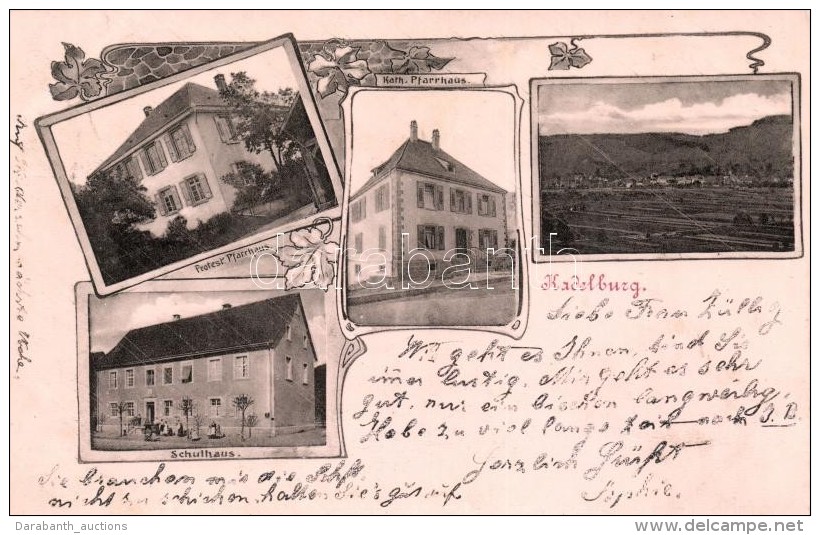 Kath. Pfarrhaus.
Protest. Pfarrhaus.
Kadelburg.
Schulhaus.
darabanth
Liebe Frau Zülly
Wie geht es Ihnen, sind Sie
immer lustig. Mir geht es sehr
gut, nur ein bischen langweilig.
Habe zu viel lange Zeit nach
Herzlich Grüßt
Sophie.
Sie brauchen mir die
nicht zu schicken, halten Sie's gut auf
Darabanth_auctions
http://www.delcampe.net